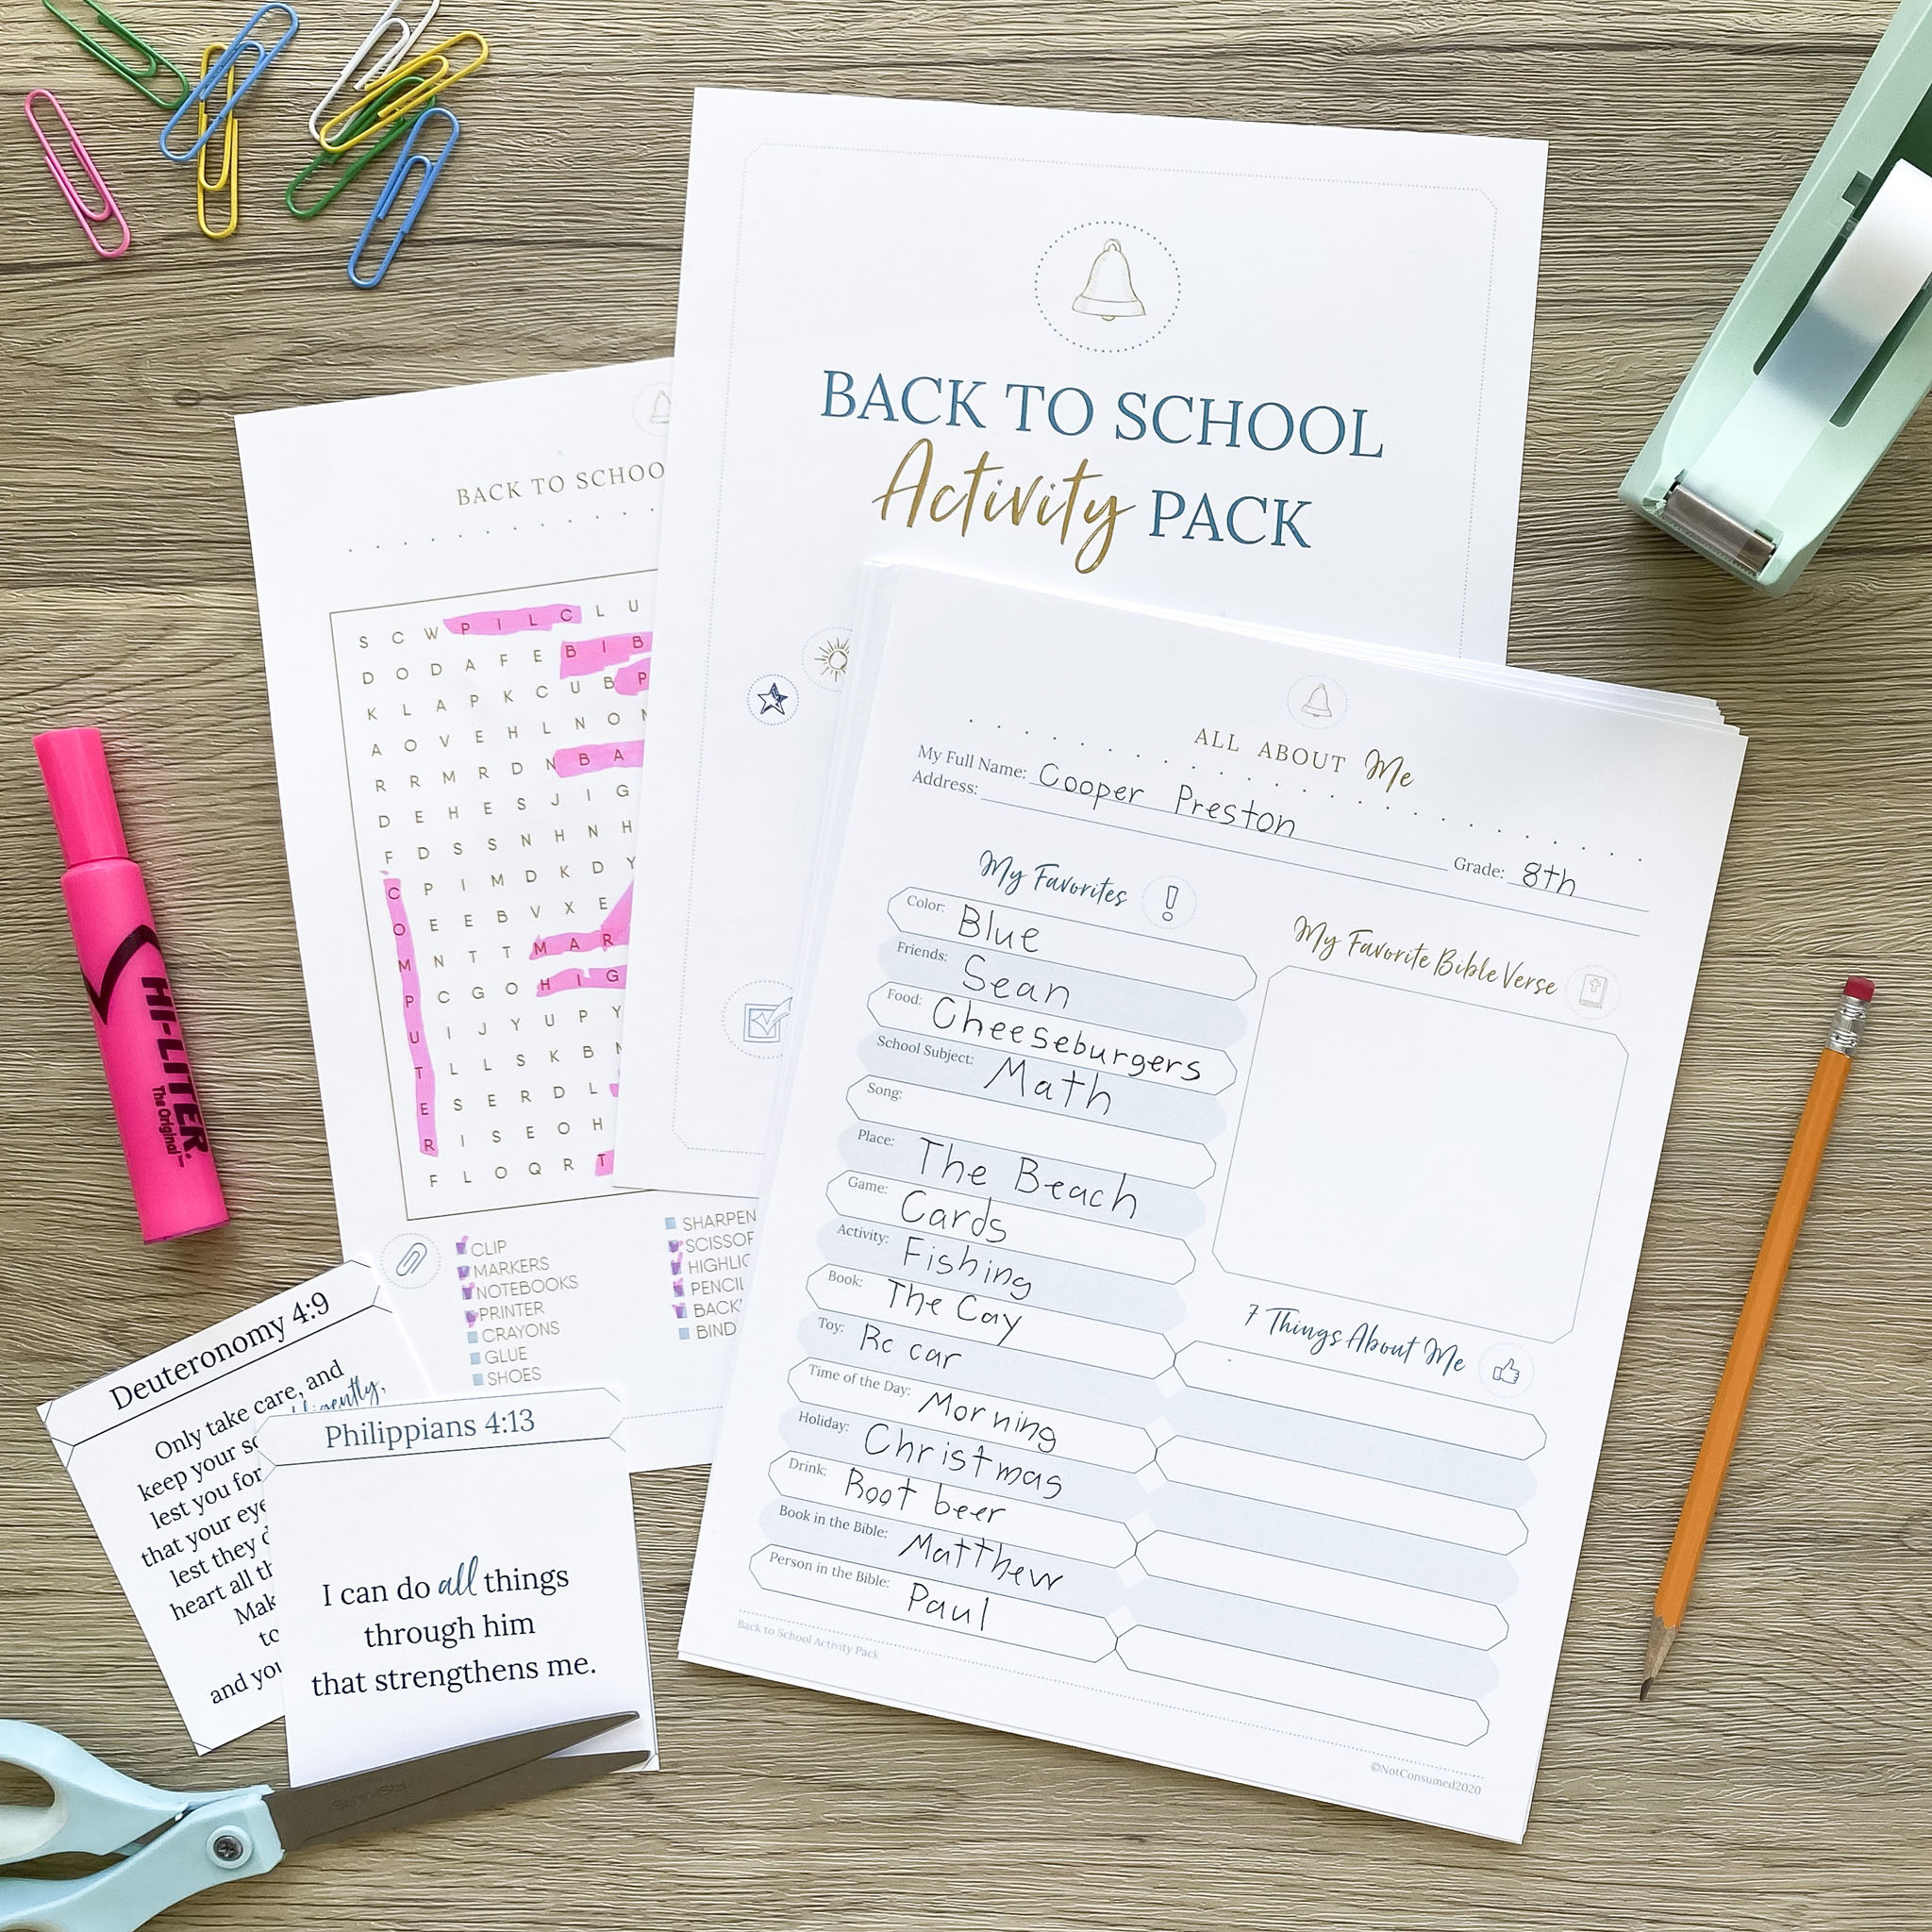 BACK TO SCHOOL
Activity PACK
BACK TO
S C W P I L C L U
D O D A F E B I B
K L A P K C U B P
A O V E H L N O
R R M R D N B A
D E H E S J I G
F D S S N H N H
C P I M D K D Y
O E E B V X E
M N T T M A R
P C G O H I G
U I J Y U P Y
T L L S K B
E S E R D L
R I S E O H
F L O Q R T
CLIP
MARKERS
NOTEBOOKS
PRINTER
CRAYONS
GLUE
SHOES
SHARPEN
SCISSOR
HIGHLIG
PENCIL
BACK
BIND
ALL ABOUT Me
My Full Name: Cooper Preston
Grade: 8th
Address:
My Favorites
Color: Blue
Friends: Sean
Food: Cheeseburgers
School Subject: Math
Song:
Place: The Beach
Game: Cards
Activity: Fishing
Book: The Cay
Toy: Rc car
Time of the Day: Morning
Holiday: Christmas
Drink: Root beer
Book in the Bible: Matthew
Person in the Bible: Paul
My Favorite Bible Verse
7 Things About Me
Back to School Activity Pack
©NotConsumed2020
HI-LITER
The Original
Deuteronomy 4:9
Only take care, and
keep your
lest you for
that your eye
lest they
heart all
and
Philippians 4:13
I can do all things
through him
that strengthens me.